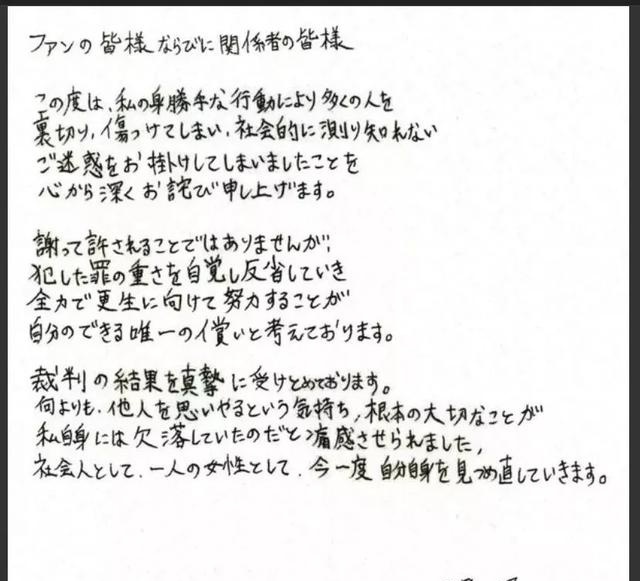 ファンの皆様ならびに関係者の皆様
この度は、私の身勝手な行動により多くの人を
裏切り、傷つけてしまい、社会的に測り知れない
ご迷惑をお掛けしてしまいましたことを
心から深くお詫び申し上げます。
謝って許されることではありませんが、
犯した罪の重さを自覚し反省していき
全力で更生に向けて努力することが
自分のできる唯一の償いと考えております。
裁判の結果を真摯に受けとめております。
何よりも、他人を思いやるという気持ち、根本の大切なことが
私自身には欠落していたのだと痛感させられました。
社会人として、一人の女性として、今一度自分自身を見つめ直していきます。